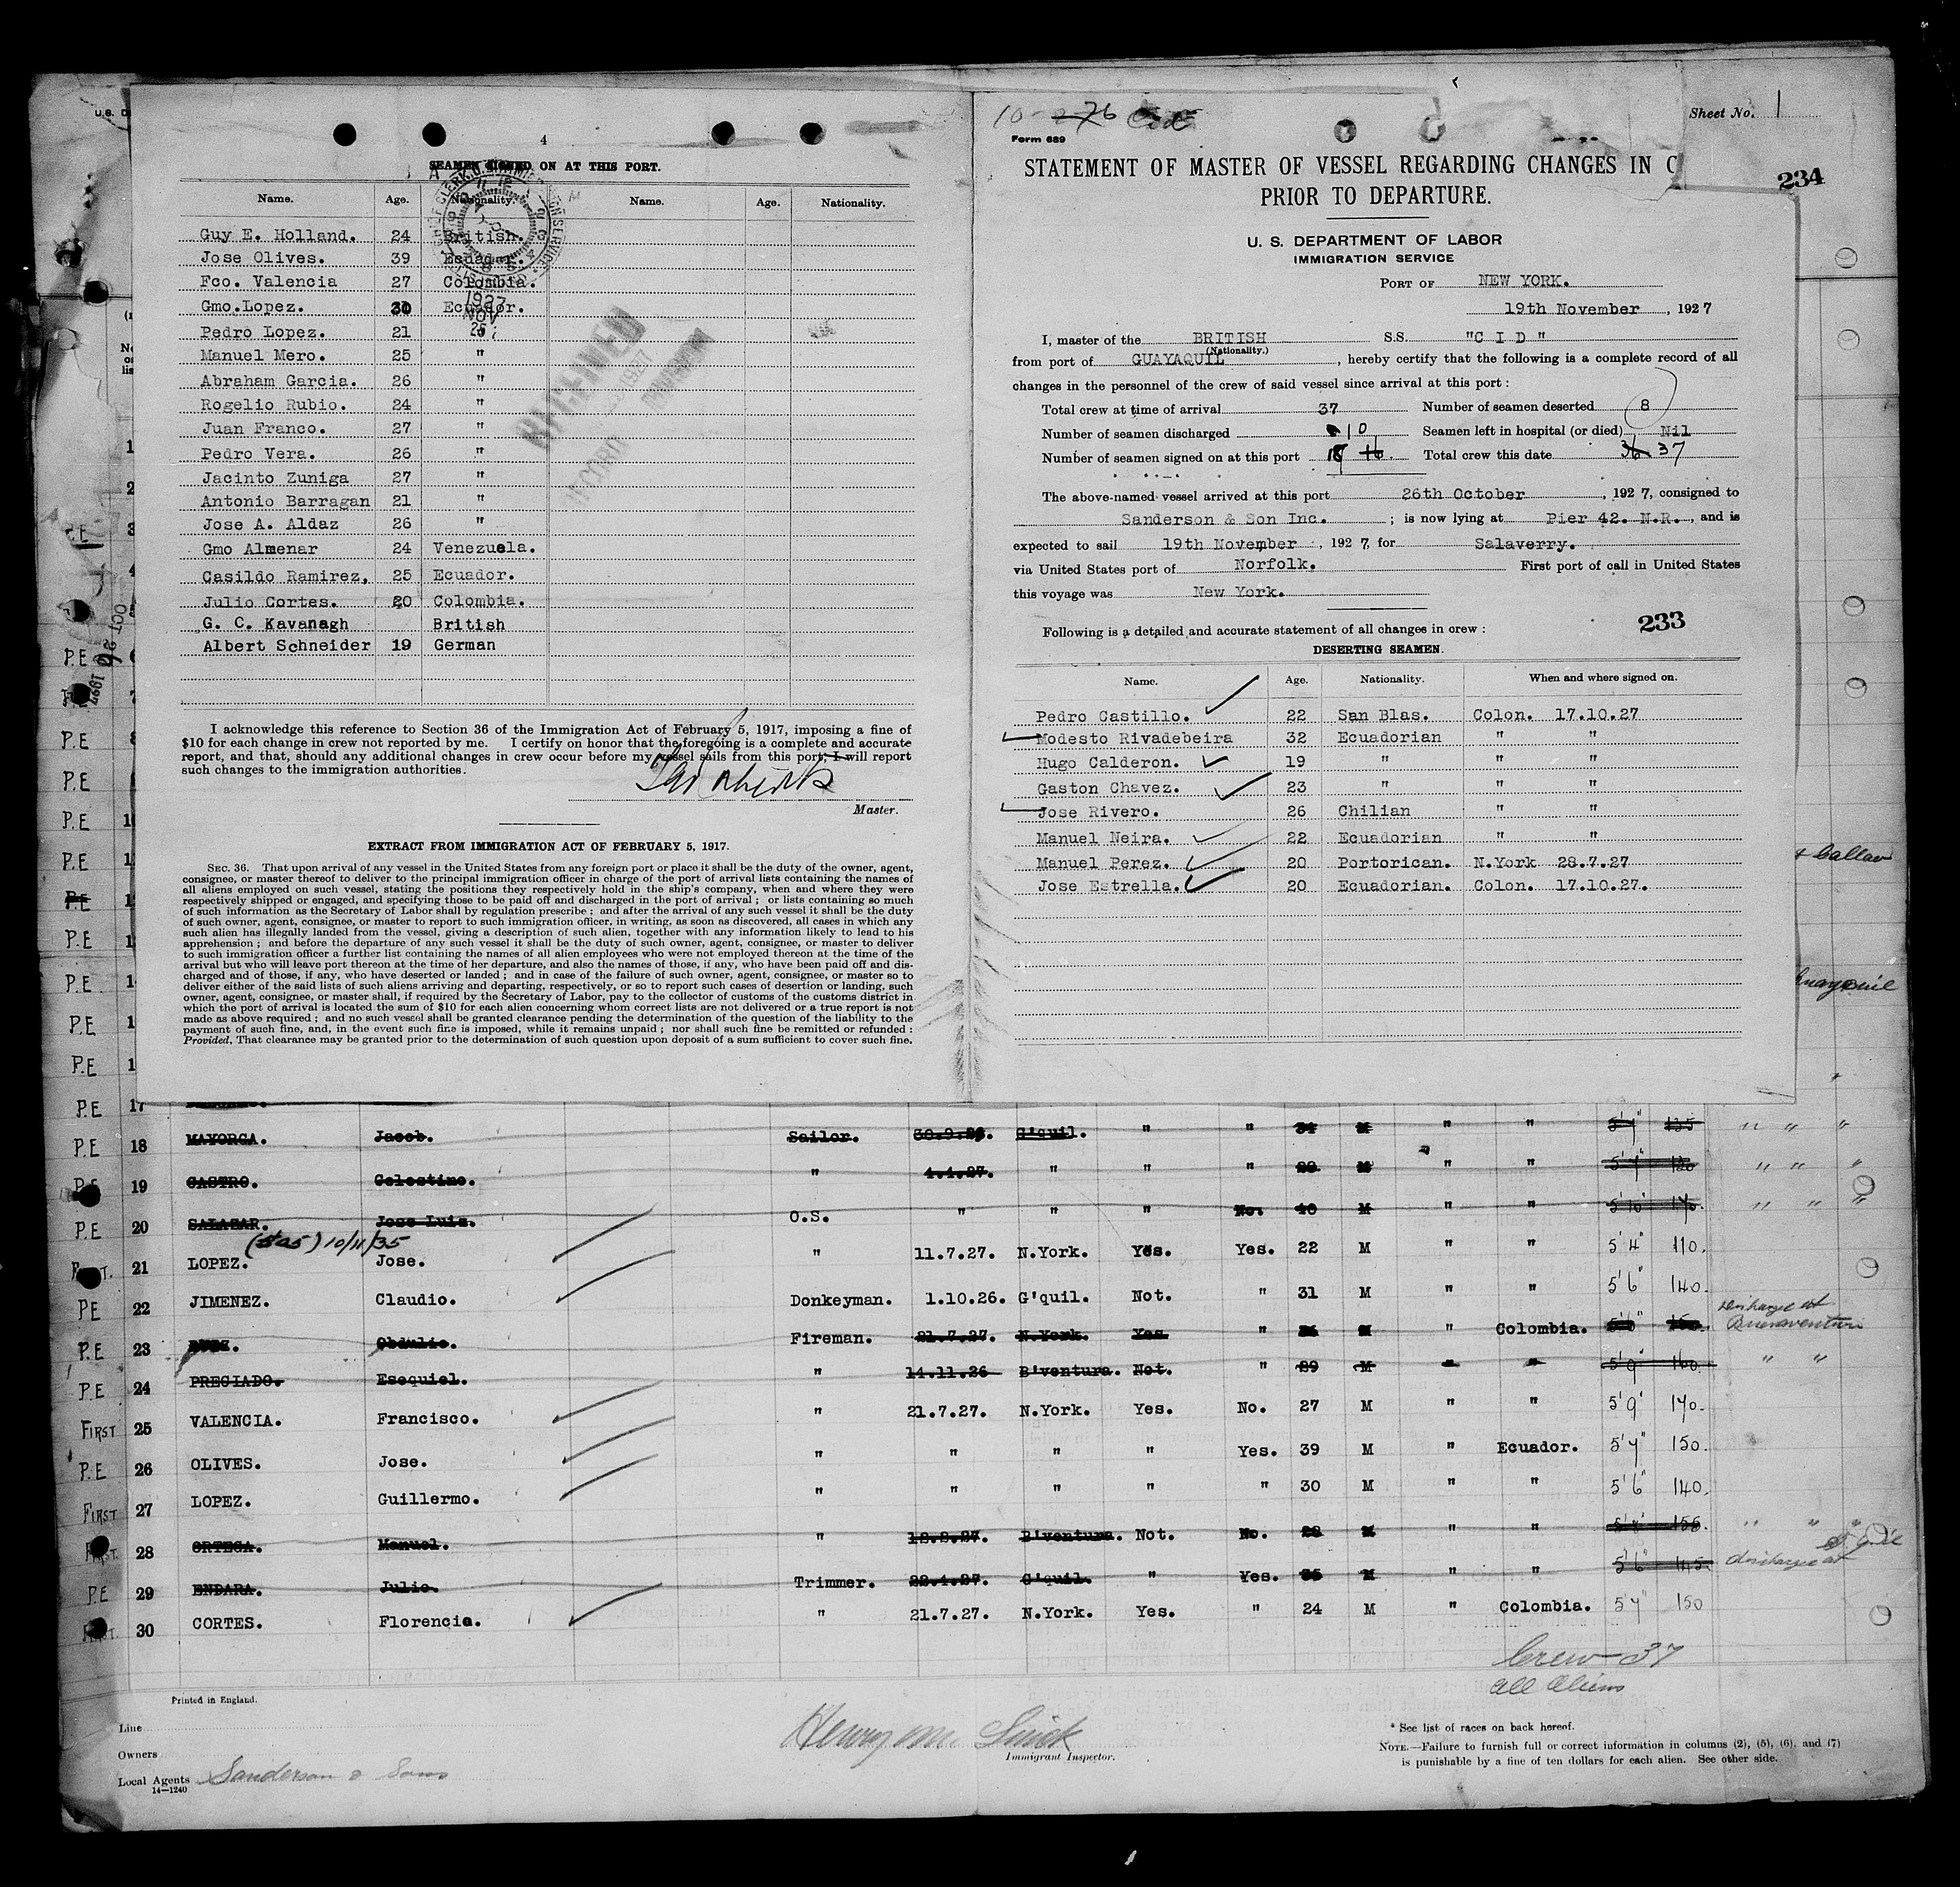 4
SEAMEN SIGNED ON AT THIS PORT.
Name. Age. Nationality. Name. Age. Nationality.
Guy E. Holland. 24 British.
Jose Olives. 39 Ecuador.
Fco. Valencia 27 Colombia.
Gmo.Lopez. 30 Ecuador.
Pedro Lopez. 21 "
Manuel Mero. 25 "
Abraham Garcia. 26 "
Rogelio Rubio. 24 "
Juan Franco. 27 "
Pedro Vera. 26 "
Jacinto Zuniga 27 "
Antonio Barragan 21 "
Jose A. Aldaz 26 "
Gmo Almenar 24 Venezuela.
Casildo Ramirez, 25 Ecuador.
Julio Cortes. 20 Colombia.
G. C. Kavanagh British
Albert Schneider 19 German
1927
NOV
I acknowledge this reference to Section 36 of the Immigration Act of February 5, 1917, imposing a fine of
$10 for each change in crew not reported by me. I certify on honor that the foregoing is a complete and accurate
report, and that, should any additional changes in crew occur before my vessel sails from this port, I will report
such changes to the immigration authorities.
Master.
EXTRACT FROM IMMIGRATION ACT OF FEBRUARY 5, 1917.
SEC. 36. That upon arrival of any vessel in the United States from any foreign port or place it shall be the duty of the owner, agent,
consignee, or master thereof to deliver to the principal immigration officer in charge of the port of arrival lists containing the names of
all aliens employed on such vessel, stating the positions they respectively hold in the ship's company, when and where they were
respectively shipped or engaged, and specifying those to be paid off and discharged in the port of arrival ; or lists containing so much
of such information as the Secretary of Labor shall by regulation prescribe ; and after the arrival of any such vessel it shall be the duty
of such owner, agent, consignee, or master to report to such immigration officer, in writing, as soon as discovered, all cases in which any
such alien has illegally landed from the vessel, giving a description of such alien, together with any information likely to lead to his
apprehension ; and before the departure of any such vessel it shall be the duty of such owner, agent, consignee, or master to deliver
to such immigration officer a further list containing the names of all alien employees who were not employed thereon at the time of the
arrival but who will leave port thereon at the time of her departure, and also the names of those, if any, who have been paid off and dis-
charged and of those, if any, who have deserted or landed ; and in case of the failure of such owner, agent, consignee, or master so to
deliver either of the said lists of such aliens arriving and departing, respectively, or so to report such cases of desertion or landing, such
owner, agent, consignee, or master shall, if required by the Secretary of Labor, pay to the collector of customs of the customs district in
which the port of arrival is located the sum of $10 for each alien concerning whom correct lists are not delivered or a true report is not
made as above required ; and no such vessel shall be granted clearance pending the determination of the question of the liability to the
payment of such fine, and, in the event such fine is imposed, while it remains unpaid ; nor shall such fine be remitted or refunded :
Provided, That clearance may be granted prior to the determination of such question upon deposit of a sum sufficient to cover such fine.
Sheet No. 1
Form 689
STATEMENT OF MASTER OF VESSEL REGARDING CHANGES IN C
234
PRIOR TO DEPARTURE.
U. S. DEPARTMENT OF LABOR
IMMIGRATION SERVICE
PORT OF NEW YORK.
19th November, 1927
I, master of the BRITISH S.S. "C I D"
(Nationality.)
from port of GUAYAQUIL, hereby certify that the following is a complete record of all
changes in the personnel of the crew of said vessel since arrival at this port :
Total crew at time of arrival 37 Number of seamen deserted 8
Number of seamen discharged 10 Seamen left in hospital (or died) Nil
Number of seamen signed on at this port 18 16 Total crew this date 36 37
The above-named vessel arrived at this port 26th October, 1927, consigned to
Sanderson & Son Inc. ; is now lying at Pier 42. N.R., and is
expected to sail 19th November, 1927, for Salaverry.
via United States port of Norfolk. First port of call in United States
this voyage was New York.
233
Following is a detailed and accurate statement of all changes in crew :
DESERTING SEAMEN.
Name. Age. Nationality. When and where signed on.
Pedro Castillo. 22 San Blas. Colon. 17.10.27
Modesto Rivadebeira 32 Ecuadorian " "
Hugo Calderon. 19 " " "
Gaston Chavez. 23 " " "
Jose Rivero. 26 Chilian " "
Manuel Neira. 22 Ecuadorian " "
Manuel Perez. 20 Portorican. N.York 28.7.27
Jose Estrella. 20 Ecuadorian. Colon. 17.10.27.
P.E 17
P.E 18 MAYORGA. Jacob. Sailor. 30.9.26. G'quil. " " 34 M " " 5'7" 135 " " "
P.E 19 CASTRO. Celestino. " 4.4.27. " " " 29 M " " 5'7" 120 " " "
P.E 20 SALAZAR. Jose Luis. O.S. " " " No. 40 M " " 5'10" 170 " " "
10/11/35
21 LOPEZ. Jose. " 11.7.27. N.York. Yes. Yes. 22 M " " 5'4" 110.
PE 22 JIMENEZ. Claudio. Donkeyman. 1.10.26. G'quil. Not. " 31 M " " 5'6" 140.
P.E 23 RUIZ. Obdulio. Fireman. 21.7.27. N.York. Yes " M " Colombia. Discharge at Buenaventura
P.E 24 PRECIADO. Esequiel. " 14.11.26 B'ventura. Not. " 29 M " " 5'9" 160. " "
FIRST 25 VALENCIA. Francisco. " 21.7.27. N.York. Yes. No. 27 M " " 5'9" 170.
P.E 26 OLIVES. Jose. " " " " Yes. 39 M " Ecuador. 5'7" 150.
FIRST 27 LOPEZ. Guillermo. " " " " " 30 M " " 5'6" 140.
28 ORTEGA. Manuel. " 18.8.27. B'ventura. Not. No. 28 M " " 155 " " "
P.E 29 ENDARA. Julio. Trimmer. 22.4.27. G'quil. " Yes. 35 M " " 5'6" 145 discharge at G'quil
30 CORTES. Florencia. " 21.7.27. N.York. Yes. " 24 M " Colombia. 5'7" 150
Crew - 37
all Aliens
Printed in England.
Line
Owners
Local Agents Sanderson & Sons
14—1240
Immigrant Inspector.
* See list of races on back hereof.
NOTE.—Failure to furnish full or correct information in columns (2), (5), (6), and (7)
is punishable by a fine of ten dollars for each alien. See other side.